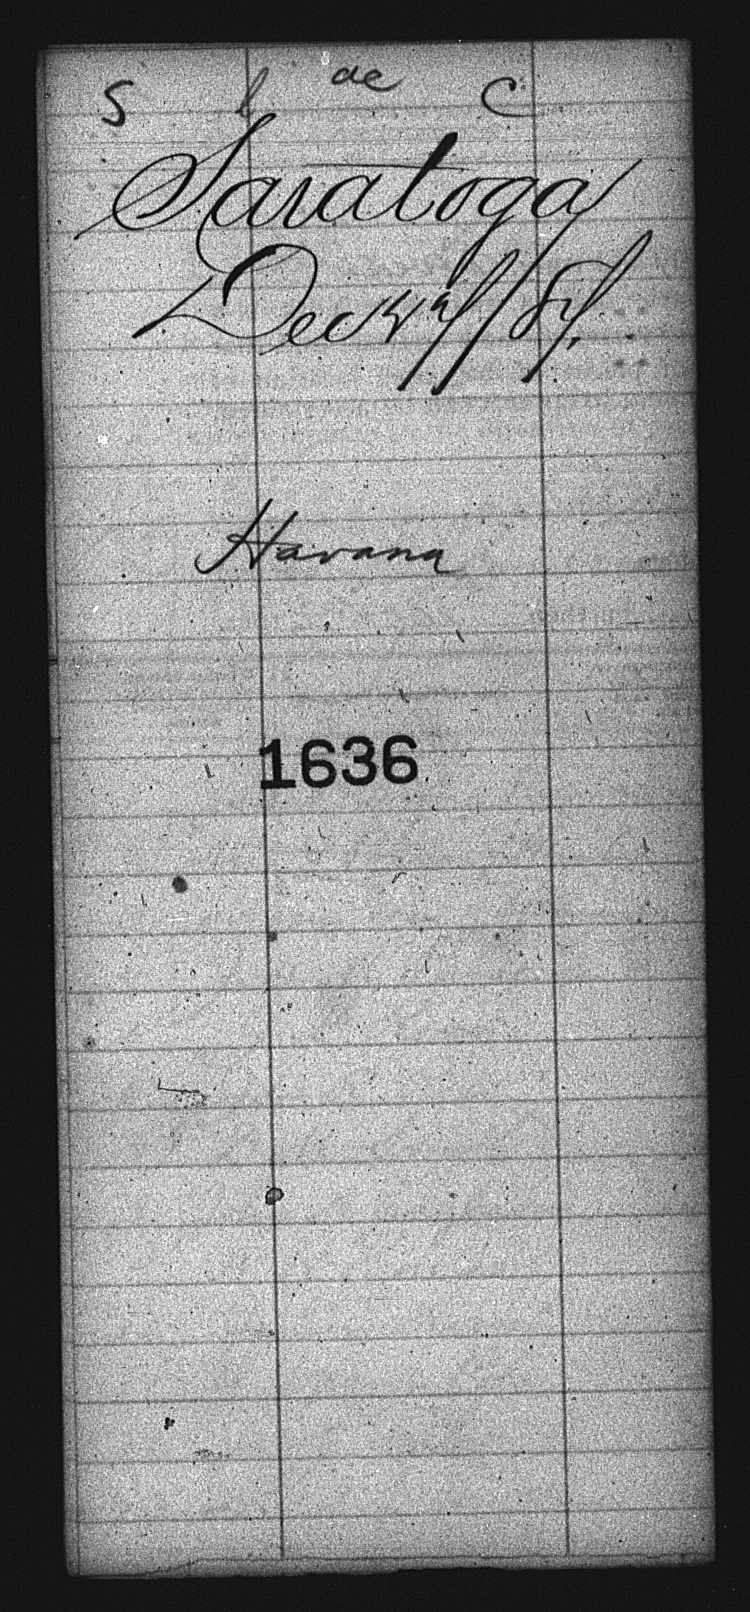 S l de C
Saratoga
Dec
Havana
1636